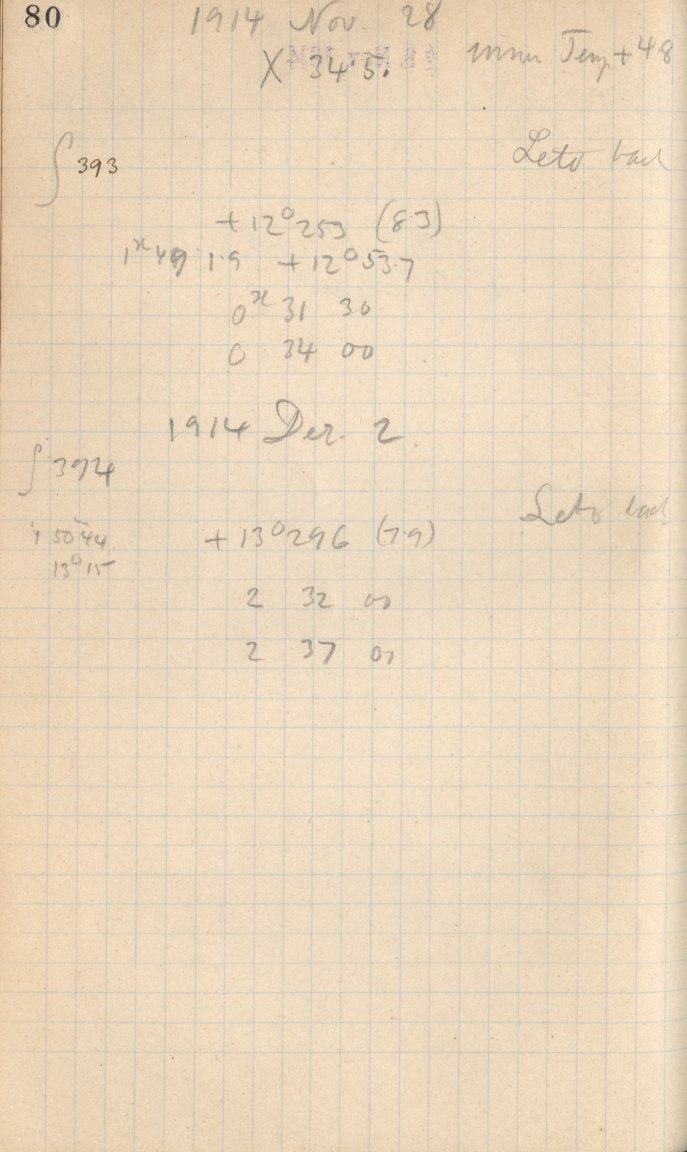 80
1914 Nov. 28
X 34.5. inner Temp +48
∫ 393
Leto bad
+12° 253 (83)
1 49 1.9 +12° 53.7
0 31 30
0 34 00
1914 Dec. 2
∫ 394
Leto bad
1 50 44 +13° 296 (79)
13° 15
2 32 00
2 37 00